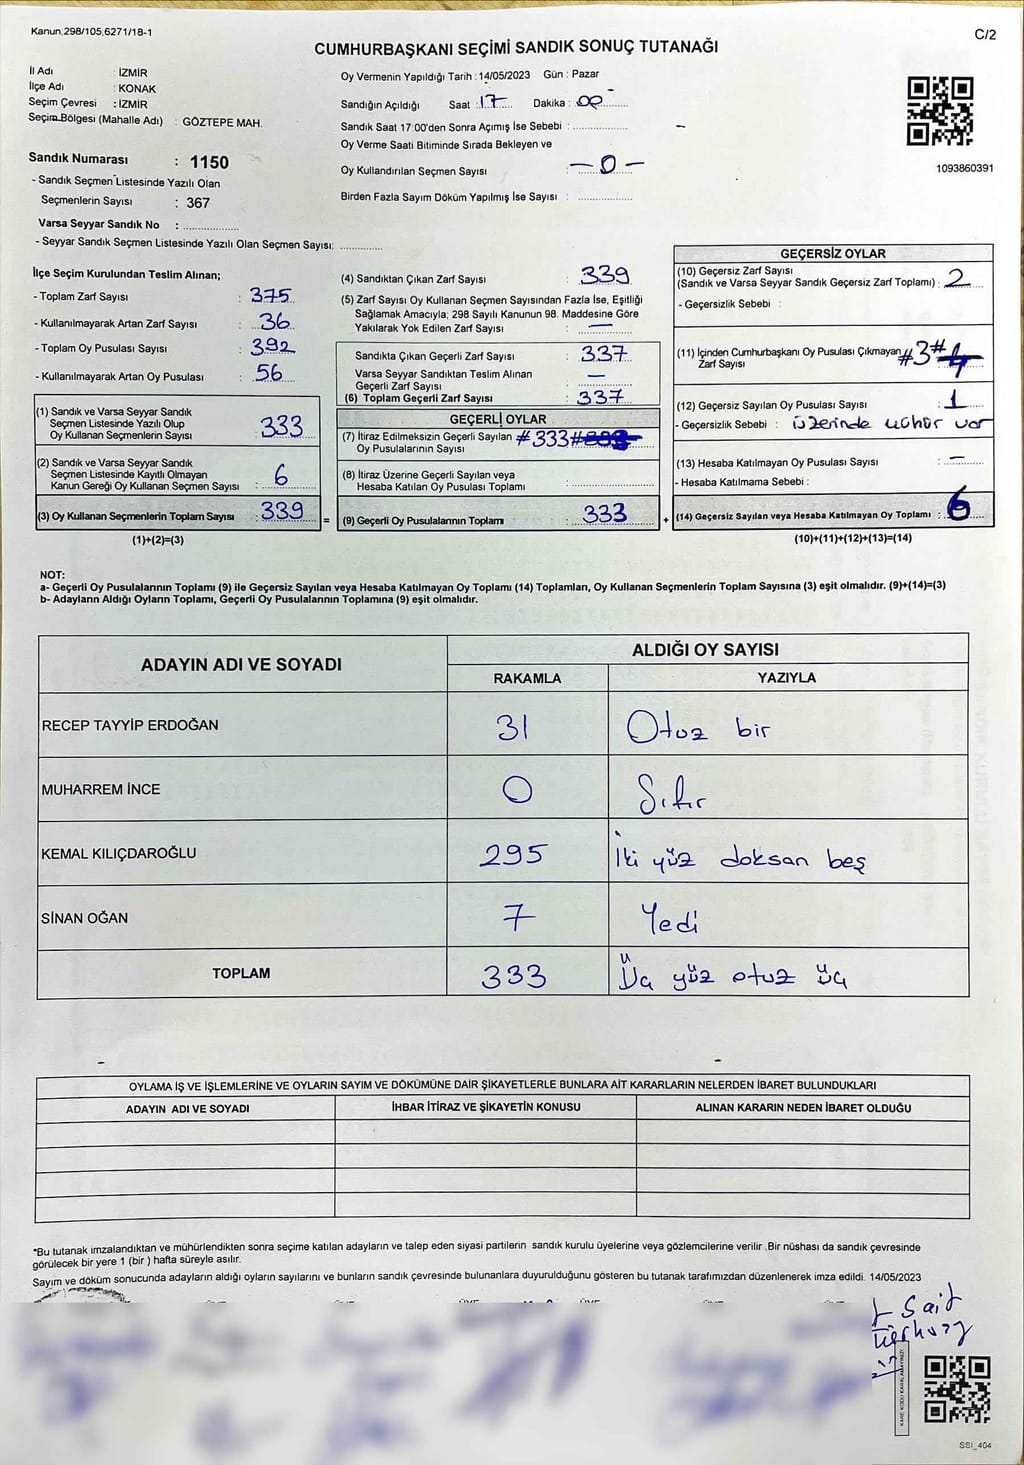 Kanun,298/105,6271/18-1
C/2
CUMHURBAŞKANI SEÇİMİ SANDIK SONUÇ TUTANAĞI
İl Adı : İZMİR
İlçe Adı : KONAK
Seçim Çevresi : İZMİR
Seçim Bölgesi (Mahalle Adı) : GÖZTEPE MAH.
Sandık Numarası : 1150
- Sandık Seçmen Listesinde Yazılı Olan
Seçmenlerin Sayısı : 367
Varsa Seyyar Sandık No : ..................
- Seyyar Sandık Seçmen Listesinde Yazılı Olan Seçmen Sayısı: .............
Oy Vermenin Yapıldığı Tarih : 14/05/2023 Gün : Pazar
Sandığın Açıldığı Saat : 17 Dakika : 00
Sandık Saat 17:00'den Sonra Açımış İse Sebebi : ................ –
Oy Verme Saati Bitiminde Sırada Bekleyen ve
Oy Kullandırılan Seçmen Sayısı : – 0 –
Birden Fazla Sayım Döküm Yapılmış İse Sayısı : ................
1093860391
İlçe Seçim Kurulundan Teslim Alınan;
- Toplam Zarf Sayısı : 375
- Kullanılmayarak Artan Zarf Sayısı : 36
- Toplam Oy Pusulası Sayısı : 392
- Kullanılmayarak Artan Oy Pusulası : 56
(1) Sandık ve Varsa Seyyar Sandık
Seçmen Listesinde Yazılı Olup
Oy Kullanan Seçmenlerin Sayısı : 333
(2) Sandık ve Varsa Seyyar Sandık
Seçmen Listesinde Kayıtlı Olmayan
Kanun Gereği Oy Kullanan Seçmen Sayısı : 6
(3) Oy Kullanan Seçmenlerin Toplam Sayısı : 339
(1)+(2)=(3)
(4) Sandıktan Çıkan Zarf Sayısı : 339
(5) Zarf Sayısı Oy Kullanan Seçmen Sayısından Fazla İse, Eşitliği
Sağlamak Amacıyla; 298 Sayılı Kanunun 98. Maddesine Göre
Yakılarak Yok Edilen Zarf Sayısı : —
Sandıkta Çıkan Geçerli Zarf Sayısı : 337
Varsa Seyyar Sandıktan Teslim Alınan
Geçerli Zarf Sayısı : —
(6) Toplam Geçerli Zarf Sayısı : 337
GEÇERLİ OYLAR
(7) İtiraz Edilmeksizin Geçerli Sayılan : #333#
Oy Pusulalarının Sayısı
(8) İtiraz Üzerine Geçerli Sayılan veya
Hesaba Katılan Oy Pusulası Toplamı : ................
= (9) Geçerli Oy Pusulalarının Toplamı : 333 +
GEÇERSİZ OYLAR
(10) Geçersiz Zarf Sayısı
(Sandık ve Varsa Seyyar Sandık Geçersiz Zarf Toplamı) : 2
- Geçersizlik Sebebi :
(11) İçinden Cumhurbaşkanı Oy Pusulası Çıkmayan #3#
Zarf Sayısı
(12) Geçersiz Sayılan Oy Pusulası Sayısı : 1
- Geçersizlik Sebebi : üzerinde mühür var
(13) Hesaba Katılmayan Oy Pusulası Sayısı : –
- Hesaba Katılmama Sebebi :
(14) Geçersiz Sayılan veya Hesaba Katılmayan Oy Toplamı : 6
(10)+(11)+(12)+(13)=(14)
NOT:
a- Geçerli Oy Pusulalarının Toplamı (9) ile Geçersiz Sayılan veya Hesaba Katılmayan Oy Toplamı (14) Toplamları, Oy Kullanan Seçmenlerin Toplam Sayısına (3) eşit olmalıdır. (9)+(14)=(3)
b- Adayların Aldığı Oyların Toplamı, Geçerli Oy Pusulalarının Toplamına (9) eşit olmalıdır.
ADAYIN ADI VE SOYADI ALDIĞI OY SAYISI
RAKAMLA YAZIYLA
RECEP TAYYİP ERDOĞAN 31 Otuz bir
MUHARREM İNCE 0 Sıfır
KEMAL KILIÇDAROĞLU 295 İki yüz doksan beş
SİNAN OĞAN 7 Yedi
TOPLAM 333 Üç yüz otuz üç
OYLAMA İŞ VE İŞLEMLERİNE VE OYLARIN SAYIM VE DÖKÜMÜNE DAİR ŞİKAYETLERLE BUNLARA AİT KARARLARIN NELERDEN İBARET BULUNDUKLARI
ADAYIN ADI VE SOYADI İHBAR İTİRAZ VE ŞİKAYETİN KONUSU ALINAN KARARIN NEDEN İBARET OLDUĞU
*Bu tutanak imzalandıktan ve mühürlendikten sonra seçime katılan adayların ve talep eden siyasi partilerin sandık kurulu üyelerine veya gözlemcilerine verilir .Bir nüshası da sandık çevresinde
görülecek bir yere 1 (bir ) hafta süreyle asılır.
Sayım ve döküm sonucunda adayların aldığı oyların sayılarını ve bunların sandık çevresinde bulunanlara duyurulduğunu gösteren bu tutanak tarafımızdan düzenlenerek imza edildi. 14/05/2023
Sait
KARE KODU KARALAMAYINIZ!
SSI_404